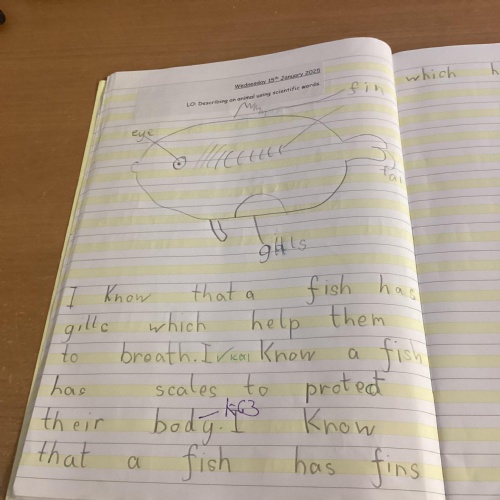 Wednesday 15th January 2025
LO: Describing an animal using scientific words.
fin
which h
eye
tai
gills
I know that a fish has
gills which help them
to breath. I know a fish
has scales to protect
their body. I know
that a fish has fins